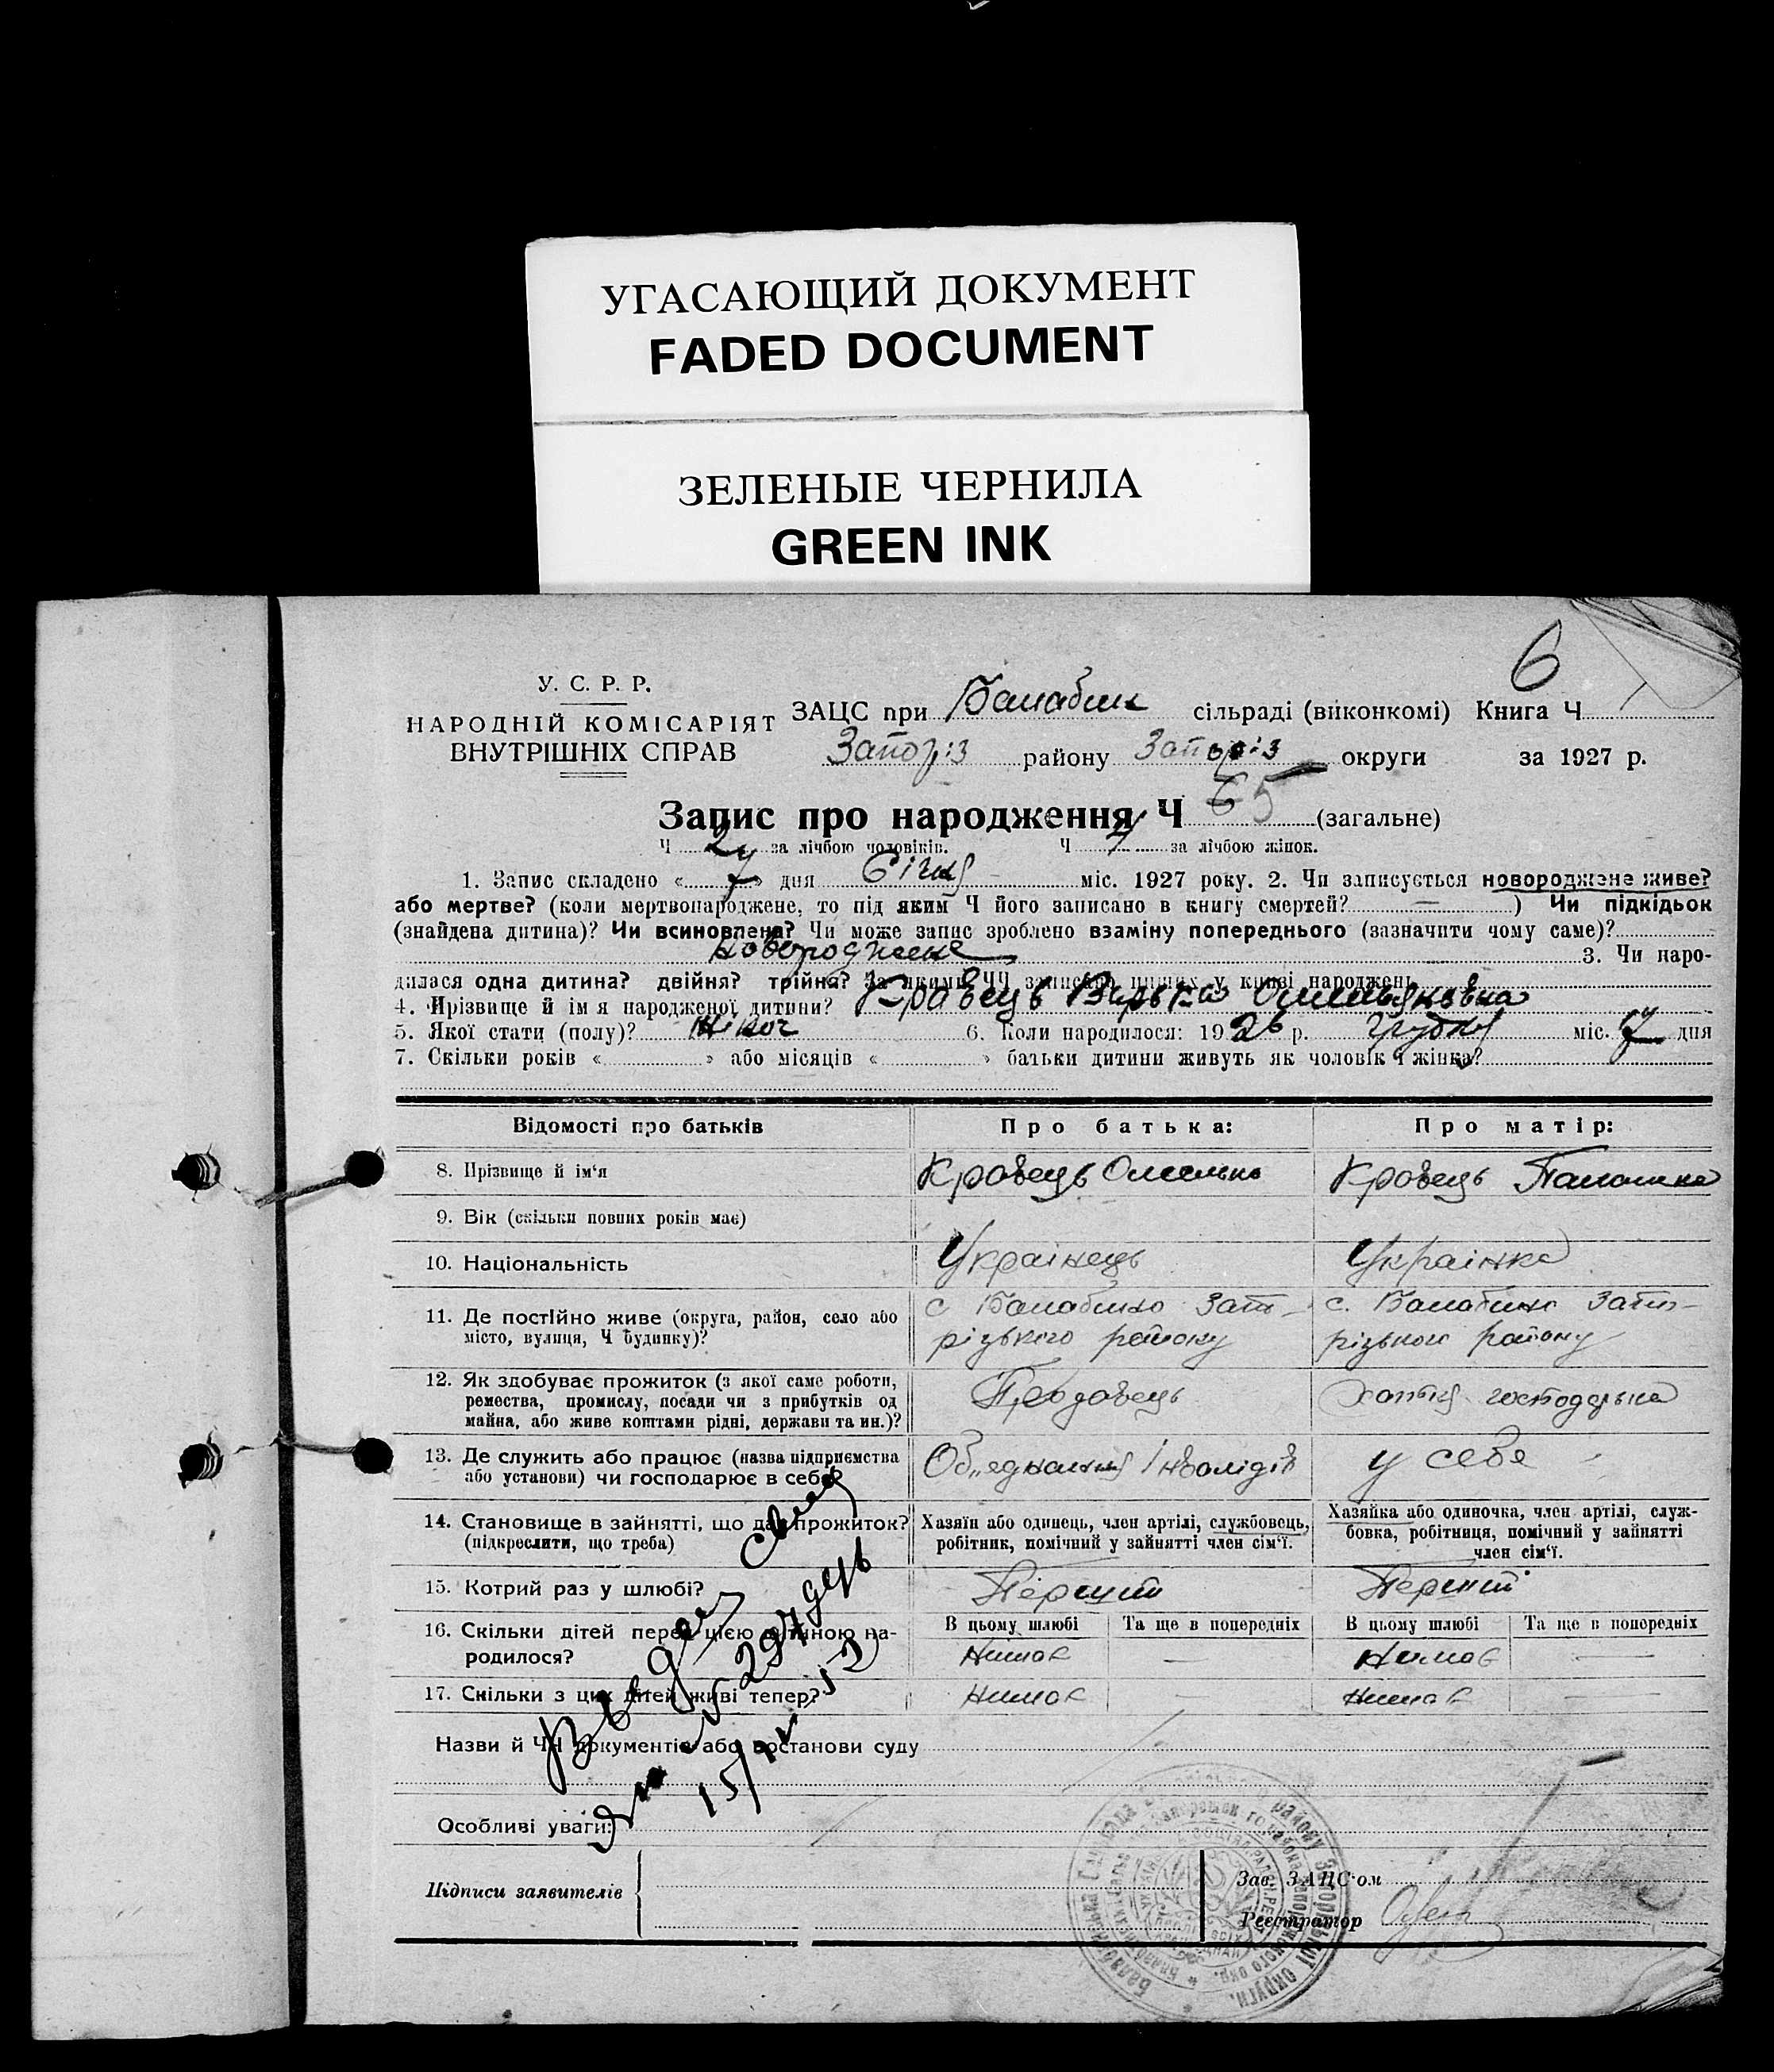 УГАСАЮЩИЙ ДОКУМЕНТ
FADED DOCUMENT
ЗЕЛЕНЫЕ ЧЕРНИЛА
GREEN INK
6
У. С. Р. Р.
НАРОДНІЙ КОМІСАРІЯТ
ВНУТРІШНІХ СПРАВ
ЗАЦС при Балабин сільраді (виконкомі) Книга Ч
Запоріз району Запоріз округи за 1927 р.
Запис про народження Ч 65 (загальне)
Ч за лічбою чоловіків. Ч за лічбою жінок.
1. Запис складено « 7 » дня Січня міс. 1927 року. 2. Чи записується новороджене живе?
або мертве? (коли мертвонароджене, то під яким Ч його записано в книгу смертей? — ) Чи підкідьок
(знайдена дитина)? Чи всиновлена? Чи може запис зроблено взаміну попереднього (зазначити чому саме)?
новороджене 3. Чи наро-
дилася одна дитина? двійня? трійня? За якими ЧЧ записано інших у книзі народжень
4. Прізвище й ім я народженої дитини? Кравець Омельяновна
5. Якої статі (полу)? жіноч 6. Коли народилося: 1926 р. Грудня міс. 7 дня
7. Скільки років « » або місяців « » батьки дитини живуть як чоловік і жінка?
Відомості про батьків Про батька: Про матір:
8. Прізвище й ім‘я Кравець Омелько Кравець
9. Вік (скільки повних років має)
10. Національність Українець Українка
11. Де постійно живе (округа, район, село або місто, вулиця, Ч будинку)?
с Балабино Запо-
різького району
с. Балабино Запо-
різького району
12. Як здобуває прожиток (з якої саме роботи,
ремества, промислу, посади чи з прибутків од
майна, або живе коштами рідні, держави та ин.)?
Продавець
господарка
13. Де служить або працює (назва підприємства
або установи) чи господарює в себе?
Об„єднання Інвалідів
у себе
14. Становище в зайнятті, що дає прожиток?
(підкреслити, що треба)
Хазяїн або одинець, член артілі, службовець,
робітник, помічний у зайнятті член сім‘ї.
Хазяйка або одиночка, член артілі, служ-
бовка, робітниця, помічний у зайнятті
член сім‘ї.
15. Котрий раз у шлюбі? Перший Перший
16. Скільки дітей перед цією дитиною на-
родилося?
В цьому шлюбі Та ще в попередніх В цьому шлюбі Та ще в попередніх
Нимає — Нимає —
17. Скільки з цих дітей живі тепер? Нимає — Нимає —
Назви й ЧЧ документів або постанови суду
Особливі уваги:
Підписи заявителів
Зав. ЗАЦС‘ом
Реєстратор